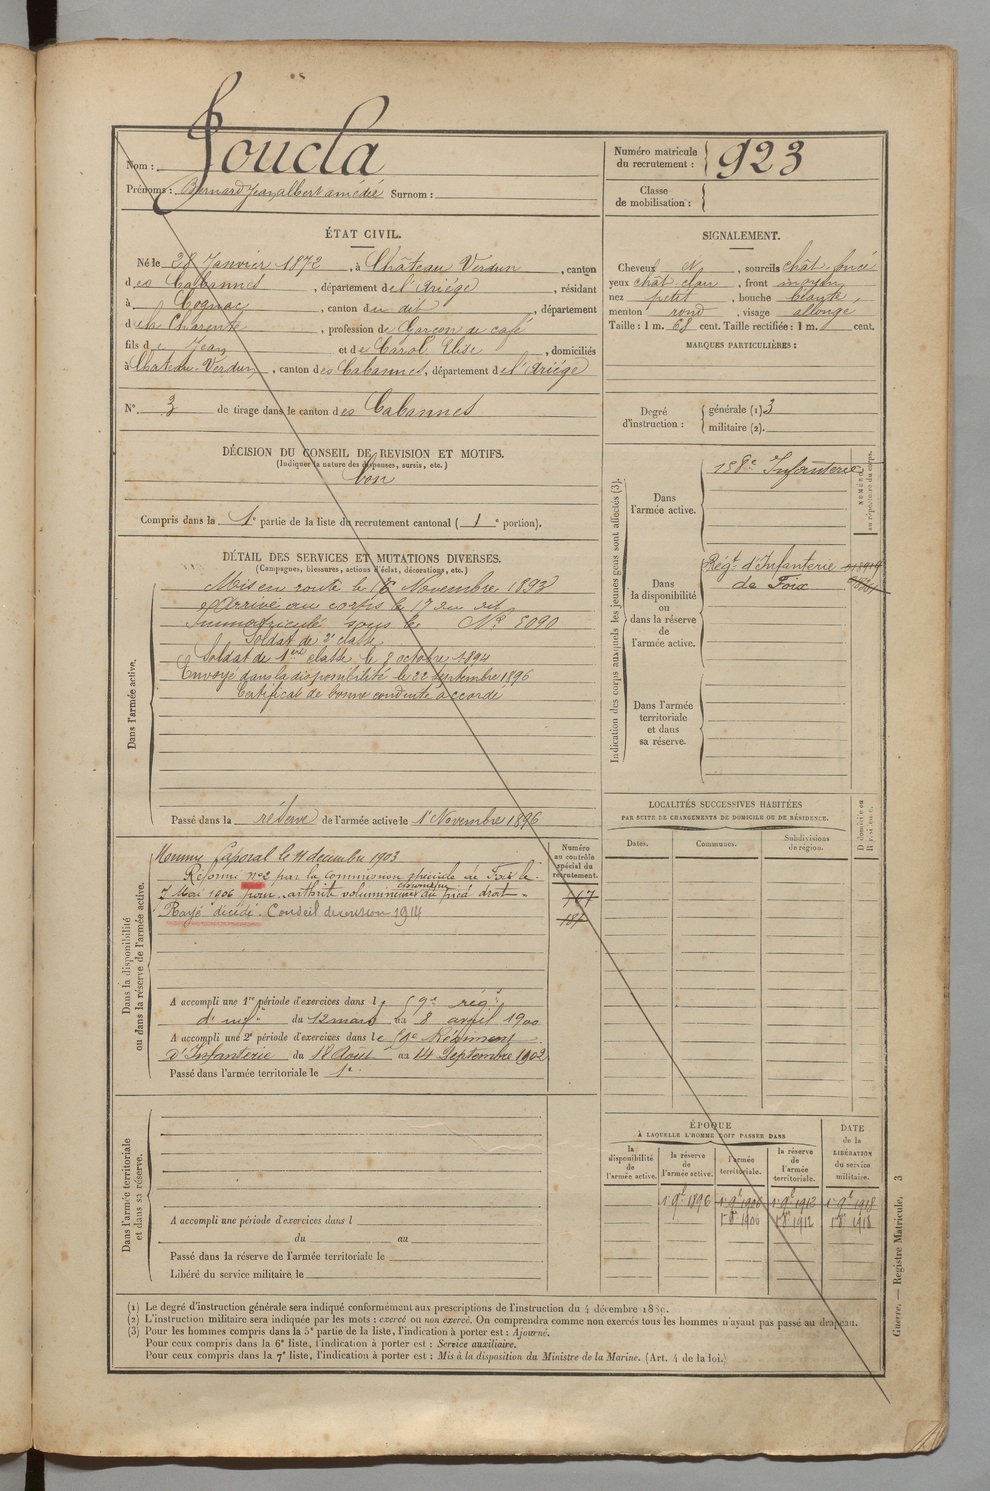 Nom : Joucla
Prénoms : Bernard Jean albert amédée Surnom :
Numéro matricule du recrutement : 923
Classe de mobilisation :
ÉTAT CIVIL.
Né le 28 Janvier 1872, à Château Verdun, canton
des Cabannes, département de l'Ariége, résidant
à Cognac, canton du dit, département
de la Charente, profession de Garçon de café
fils de Jean et de Carol Elise, domiciliés
à Chateau-Verdun, canton des Cabannes, département de l'Ariége
N° 3 de tirage dans le canton des Cabannes
SIGNALEMENT.
Cheveux N, sourcils chât. foncé
yeux chât clair, front moyen
nez petit, bouche béante,
menton rond, visage allongé
Taille : 1 m. 68 cent. Taille rectifiée : 1 m. cent.
MARQUES PARTICULIÈRES :
Degré d'instruction : générale (1) 3
militaire (2).
DÉCISION DU CONSEIL DE REVISION ET MOTIFS.
(Indiquer la nature des dispenses, sursis, etc.)
bon
Compris dans la 1e partie de la liste du recrutement cantonal ( 1 e portion).
DÉTAIL DES SERVICES ET MUTATIONS DIVERSES.
(Campagnes, blessures, actions d'éclat, décorations, etc.)
Dans l'armée active.
Mis en route le 16 Novembre 1893
Arrivé au corps le 17 du dit
Immatriculé sous le N° 5090
Soldat de 2e classe
Soldat de 1ère classe le 8 octobre 1894
Envoyé dans la disponibilité le 22 septembre 1896
Certificat de bonne conduite accordé
Passé dans la réserve de l'armée active le 1er Novembre 1896
Indication des corps auxquels les jeunes gens sont affectés (3).
NUMÉRO au répertoire du corps.
Dans l'armée active.
158e Infanterie
Dans la disponibilité ou dans la réserve de l'armée active.
Régt. d'Infanterie
de Foix
Dans l'armée territoriale et dans sa réserve.
LOCALITÉS SUCCESSIVES HABITÉES
PAR SUITE DE CHANGEMENTS DE DOMICILE OU DE RÉSIDENCE.
Dates. Communes. Subdivisions de région. D domicile ou R résidence.
Dans la disponibilité ou dans la réserve de l'armée active.
Numéro au contrôle spécial du recrutement.
Nommé Caporal le 11 décembre 1903
Réformé n°2 par la commission spéciale de Foix le
7 Mai 1906 pour arthrite volumineuse du pied droit -
Rayé décédé. Conseil de revision 1914
767
187
A accompli une 1re période d'exercices dans le 59e régt
d'infie du 12 mars au 8 avril 1900
A accompli une 2e période d'exercices dans le 59e Régiment
d'Infanterie du 18 Août au 14 Septembre 1902
Passé dans l'armée territoriale le 1er
Dans l'armée territoriale et dans sa réserve.
A accompli une période d'exercices dans l
du au
Passé dans la réserve de l'armée territoriale le
Libéré du service militaire le
ÉPOQUE
À LAQUELLE L'HOMME DOIT PASSER DANS
la disponibilité de l'armée active. la réserve de l'armée active. l'armée territoriale. la réserve de l'armée territoriale. DATE de la LIBÉRATION du service militaire.
1er 9bre 1896 1er 9bre 1906 1er 9bre 1912 1er 9bre 1918
1er 8bre 1906 1er 8bre 1912 1er 8bre 1918
(1) Le degré d'instruction générale sera indiqué conformément aux prescriptions de l'instruction du 4 décembre 1889.
(2) L'instruction militaire sera indiquée par les mots : exercé ou non exercé. On comprendra comme non exercés tous les hommes n'ayant pas passé au drapeau.
(3) Pour les hommes compris dans la 5e partie de la liste, l'indication à porter est : Ajourné.
Pour ceux compris dans la 6e liste, l'indication à porter est : Service auxiliaire.
Pour ceux compris dans la 7e liste, l'indication à porter est : Mis à la disposition du Ministre de la Marine. (Art. 4 de la loi.)
Guerre. — Registre Matricule. 3